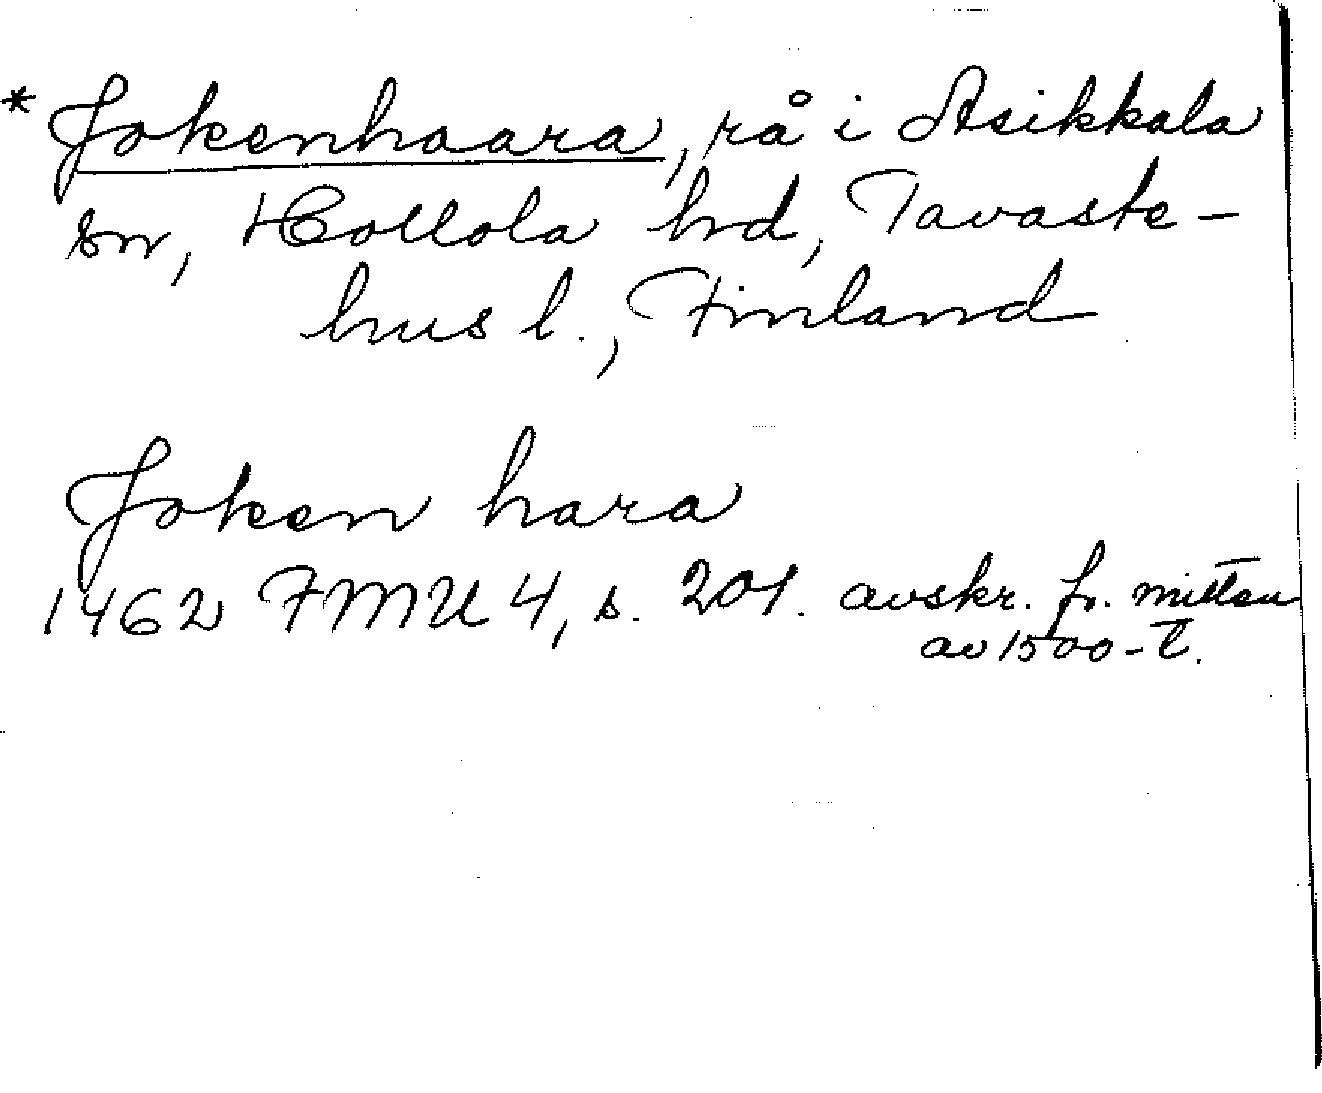 * Jokenhaara, rå i Asikkala
sn, Hollola hd, Tavaste-
hus l., Finland
Joken hara
1462 FMU 4, s. 201. avskr. fr. mitten
av 1500-t.